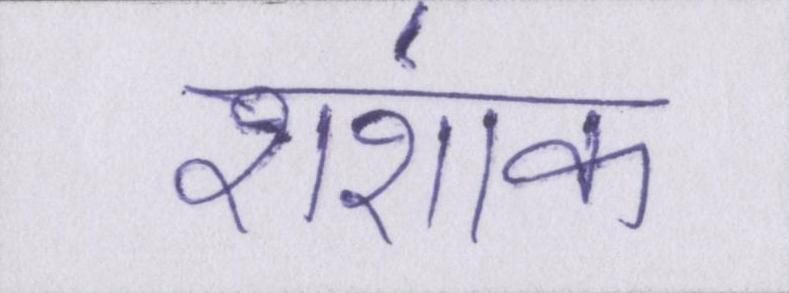 शशांक